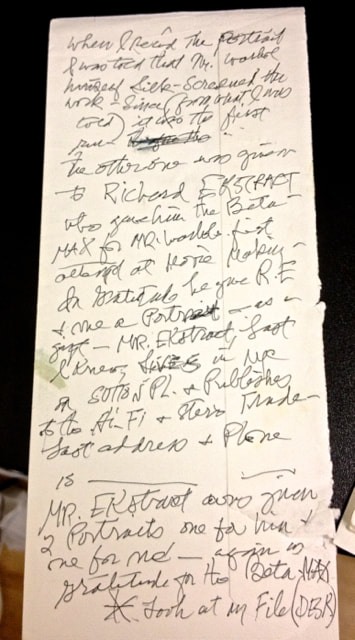 When I Rec'd the Portrait
I was told that Mr. Warhol
himself Silk-Screened the
work - Since (from what I was
told) it was the first
run
The other one was given
to Richard EKSTRACT
who gave him the Beta-
MAX for MR. Warhol's first
attempt at Movie Making -
In Gratitude he gave R.E
& me a Portrait - as a
gift - MR. EKstract, last
I knew, LIVES in NYC
on SUTTON PL. & Publishes
to the Hi-Fi & Stereo Trade -
Last address & Phone
is
MR. EKstract was given
2 Portraits one for him &
one for me - again in
gratitude for the Beta MAX.
Look at my File (DER)